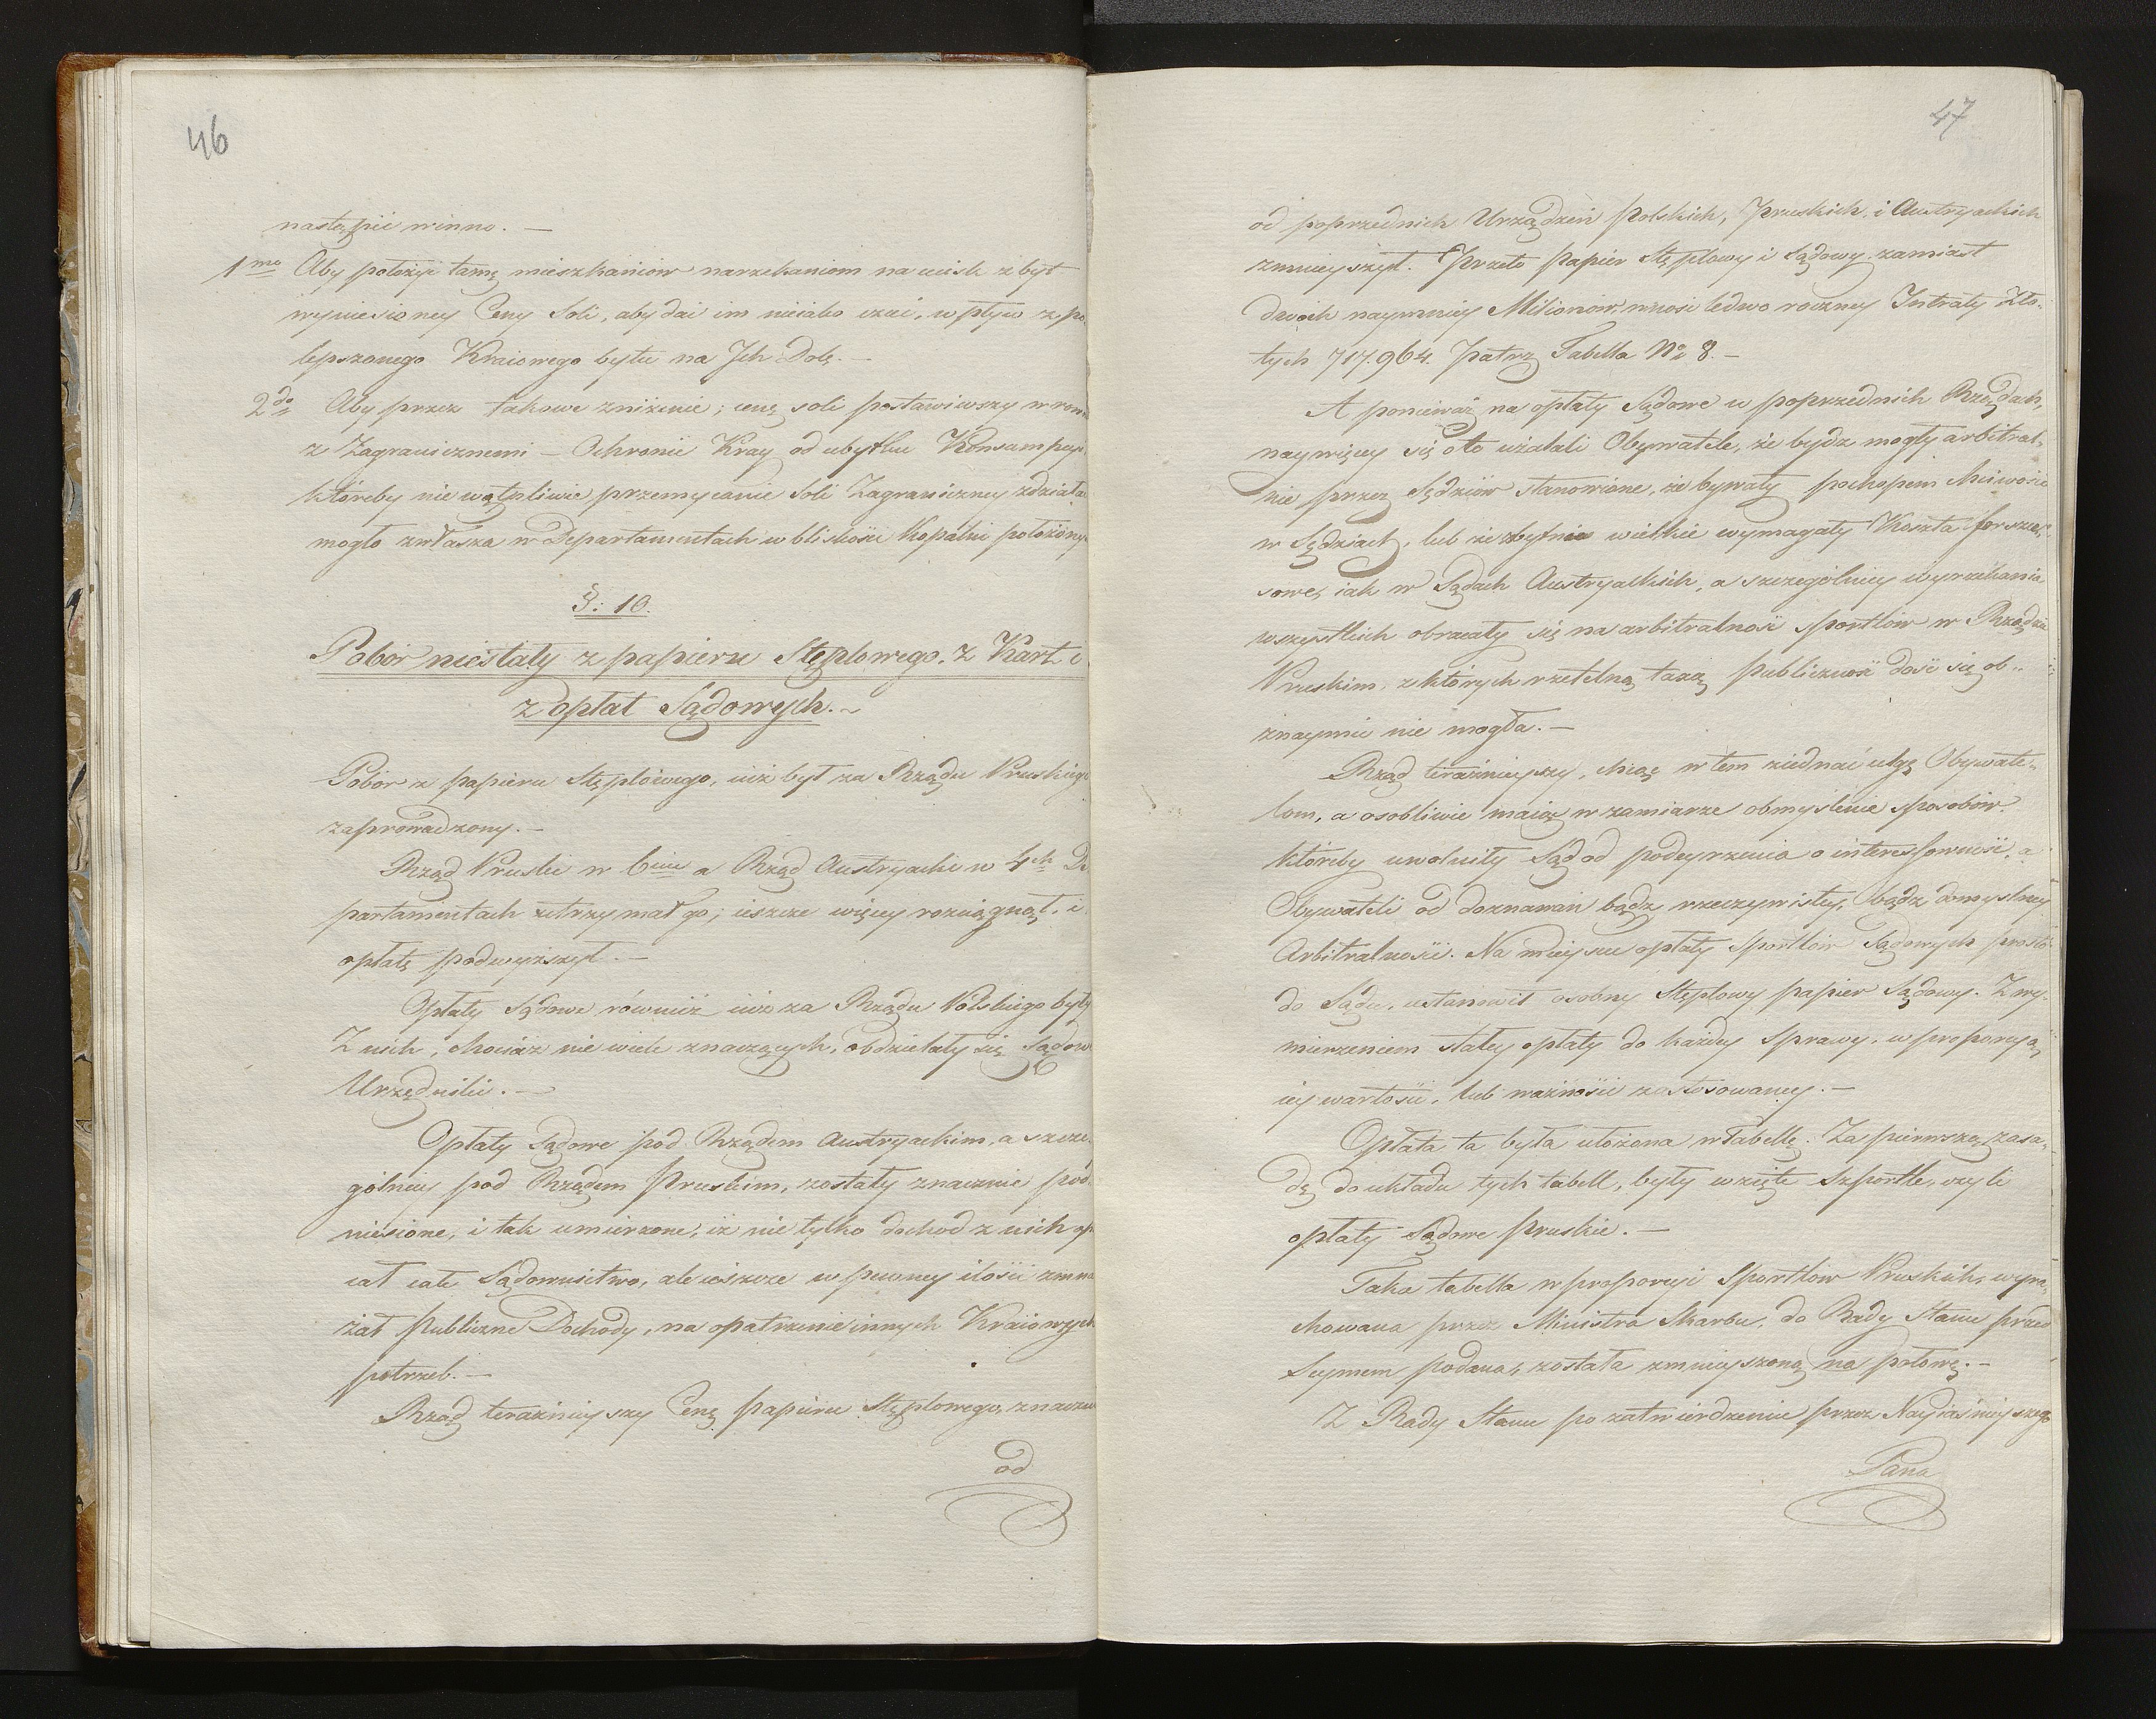 46
nastąpić winno. —
1mo Aby położyć tamę mieszkańców narzekaniom na ucisk zbyt
wyniesioney Ceny Soli, aby dać im nieiako uczuć, wpływ z po
lepszonego Kraiowego bytu na Jch Dolę. —
2do Aby przez takowe zniżenie; cenę soli postawiwszy w rów
z Zagranicznemi — Ochronić Kray od ubytku Konsumpcyi
któreby niewątpliwie przemycanie Soli Zagraniczney zdziała
mogło zwłasza w Departamentach w bliskości Kopalni położony
§: 10.
Pobór niestały z papieru Stęplowego, z Kart i
z opłat Sądowych. ~
Pobór z papieru Stęplowego, iuż był za Rządu Pruskieg
zaprowadzony. —
Rząd Pruski w 6ciu a Rząd Austryacki w 4ch De
partamentach utrzymał go; ieszcze więcey rozciągnął, i
opłatę podwyższył. —
Opłaty Sądowe również iuż za Rządu Polskiego były
Z nich, chociaż nie wiele znaczących, obdzielały się Sądow
Urzędniki. —
Opłaty Sądowe pod Rządem Austryackim, a szcze
gólniey pod Rządem Pruskim, zostały znacznie pod
niesione, i tak umierzone, iż nie tylko dochod z nich op
cał całe Sądownictwo, ale ieszcze w pewney ilości zmna
żał Publiczne Dochody, na opatrzenie innych Kraiowych
potrzeb. —
Rząd teraźnieyszy Cenę papieru Stęplowego, znaczni
od
47
od poprzednich Urządzeń Polskich, Pruskich, i Austryackich
zmnieyszył. Przeto Papier Stęplowy i Sądowy zamiast
dwóch naymniey Milionów, wnosi ledwo roczney Intraty Zło-
tych 717.964. Patrz Tabella No 8. —
A ponieważ na opłaty Sądowe w poprzednich Rządach,
naywięcey się o to użalali Obywatele, że bydz mogły arbitral-
nie przez Sędziów stanowione, że bywały pochopem chciwości
w Sędziach, lub że zbytnie wielkie wymagały Koszta forszus-
sowe, iak w Sądach Austryackich, a szczególniey wyrzekania
wszystkich obracały się na arbitralność Sportlów w Rządzie
Pruskim, z których rzetelną taxą Publiczność dość się ob-
znaymić nie mogła. —
Rząd teraźnieyszy, chcąc w tem ziednać ulgę Obywate-
lom, a osobliwie maiąc w zamiarze obmyślenie sposobów
któreby uwolniły Sąd od podeyrzenia o interessowność, a
Obywateli od doznawań bądz rzeczywistey, bądz domyslney
Arbitralności. Na mieyscu opłaty Sportlów Sądowych prosto
do Sądu, ustanowił osobny Stęplowy papier Sądowy. Z wy-
mierzeniem stałey opłaty do każdey Sprawy, w proporcyą
iey wartości, lub ważności zastosowaney. —
Opłata ta była ułożona w Tabellę. Za pierwszą zasa-
dę do układu tych tabell, były wzięte Szportle, czyli
opłaty Sądowe Pruskie. —
Taka tabella w proporcyi Sportlow Pruskich, wyra-
chowana przez Ministra Skarbu, do Rady Stanu przed
Seymem podana, została zmnieyszoną na połowę. —
Z Rady Stanu po zatwierdzenie przez Nayiaśnieyszego
Pana